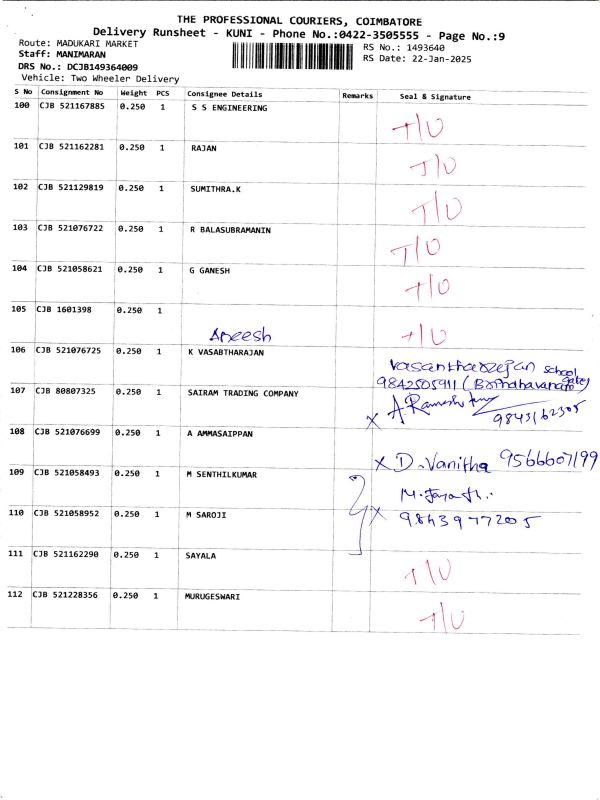 THE PROFESSIONAL COURIERS, COIMBATORE
Delivery Runsheet - KUNI - Phone No.:0422-3505555 - Page No.:9
Route: MADUKARI MARKET
Staff: MANIMARAN
DRS No.: DCJB149364009
Vehicle: Two Wheeler Delivery
RS No.: 1493640
RS Date: 22-Jan-2025
S No Consignment No Weight PCS Consignee Details Remarks Seal & Signature
100 CJB 521167885 0.250 1 S S ENGINEERING
T/U
101 CJB 521162281 0.250 1 RAJAN
T/U
102 CJB 521129819 0.250 1 SUMITHRA.K
T/U
103 CJB 521076722 0.250 1 R BALASUBRAMANIN
T/U
104 CJB 521058621 0.250 1 G GANESH
T/U
105 CJB 1601398 0.250 1
Aneesh T/U
106 CJB 521076725 0.250 1 K VASABTHARAJAN
school
9842505911
107 CJB 80807325 0.250 1 SAIRAM TRADING COMPANY
x A. Ramesh
9843162305
108 CJB 521076699 0.250 1 A AMMASAIPPAN
x D. Vanitha 9566607199
109 CJB 521058493 0.250 1 M SENTHILKUMAR
110 CJB 521058952 0.250 1 M SAROJI
x 9843977205
111 CJB 521162290 0.250 1 SAYALA
T/U
112 CJB 521228356 0.250 1 MURUGESWARI
T/U